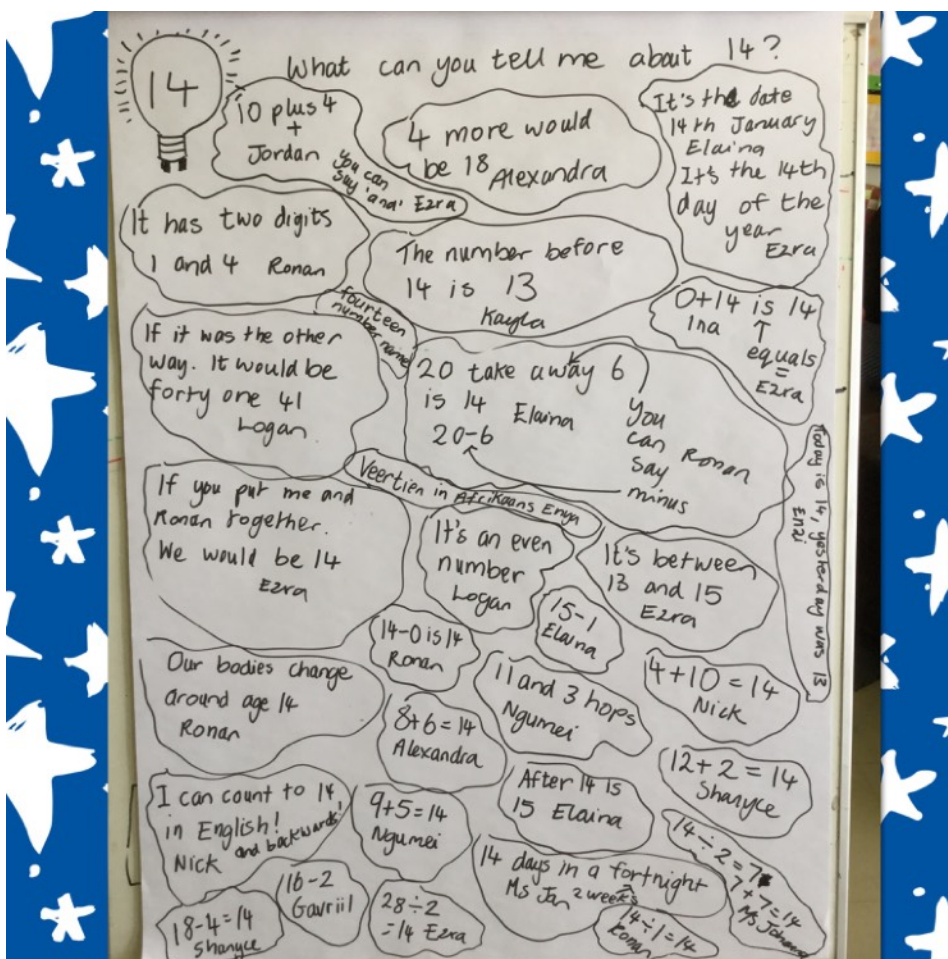 14
What can you tell me about 14?
10 plus 4
+
Jordan
you can
say 'and' Ezra
4 more would
be 18 Alexandra
It's the date
14th January
Elaina
It's the 14th
day of the
year
Ezra
It has two digits
1 and 4 Ronan
The number before
14 is 13
Kayla
fourteen
number name
0+14 is 14
Ina
equals
=
Ezra
If it was the other
way. It would be
forty one 41
Logan
20 take away 6
is 14 Elaina
20-6
You
can
say
minus
Ronan
Today is 14, yesterday was 13
Enzi
Veertien in Afrikaans Enya
If you put me and
Ronan together.
We would be 14
Ezra
It's an even
number
Logan
It's between
13 and 15
Ezra
15-1
Elaina
14-0 is 14
Ronan
Our bodies change
around age 14
Ronan
8+6=14
Alexandra
11 and 3 hops
Ngumei
4+10=14
Nick
12+2=14
Shanyce
I can count to 14
in English!
and backwards!
Nick
9+5=14
Ngumei
After 14 is
15 Elaina
14÷2=7
7+7=14
14 days in a fortnight
Ms Jan 2 weeks
18-4=14
Shanyce
16-2
Gavriil
28÷2
=14 Ezra
14÷1=14
Ronan